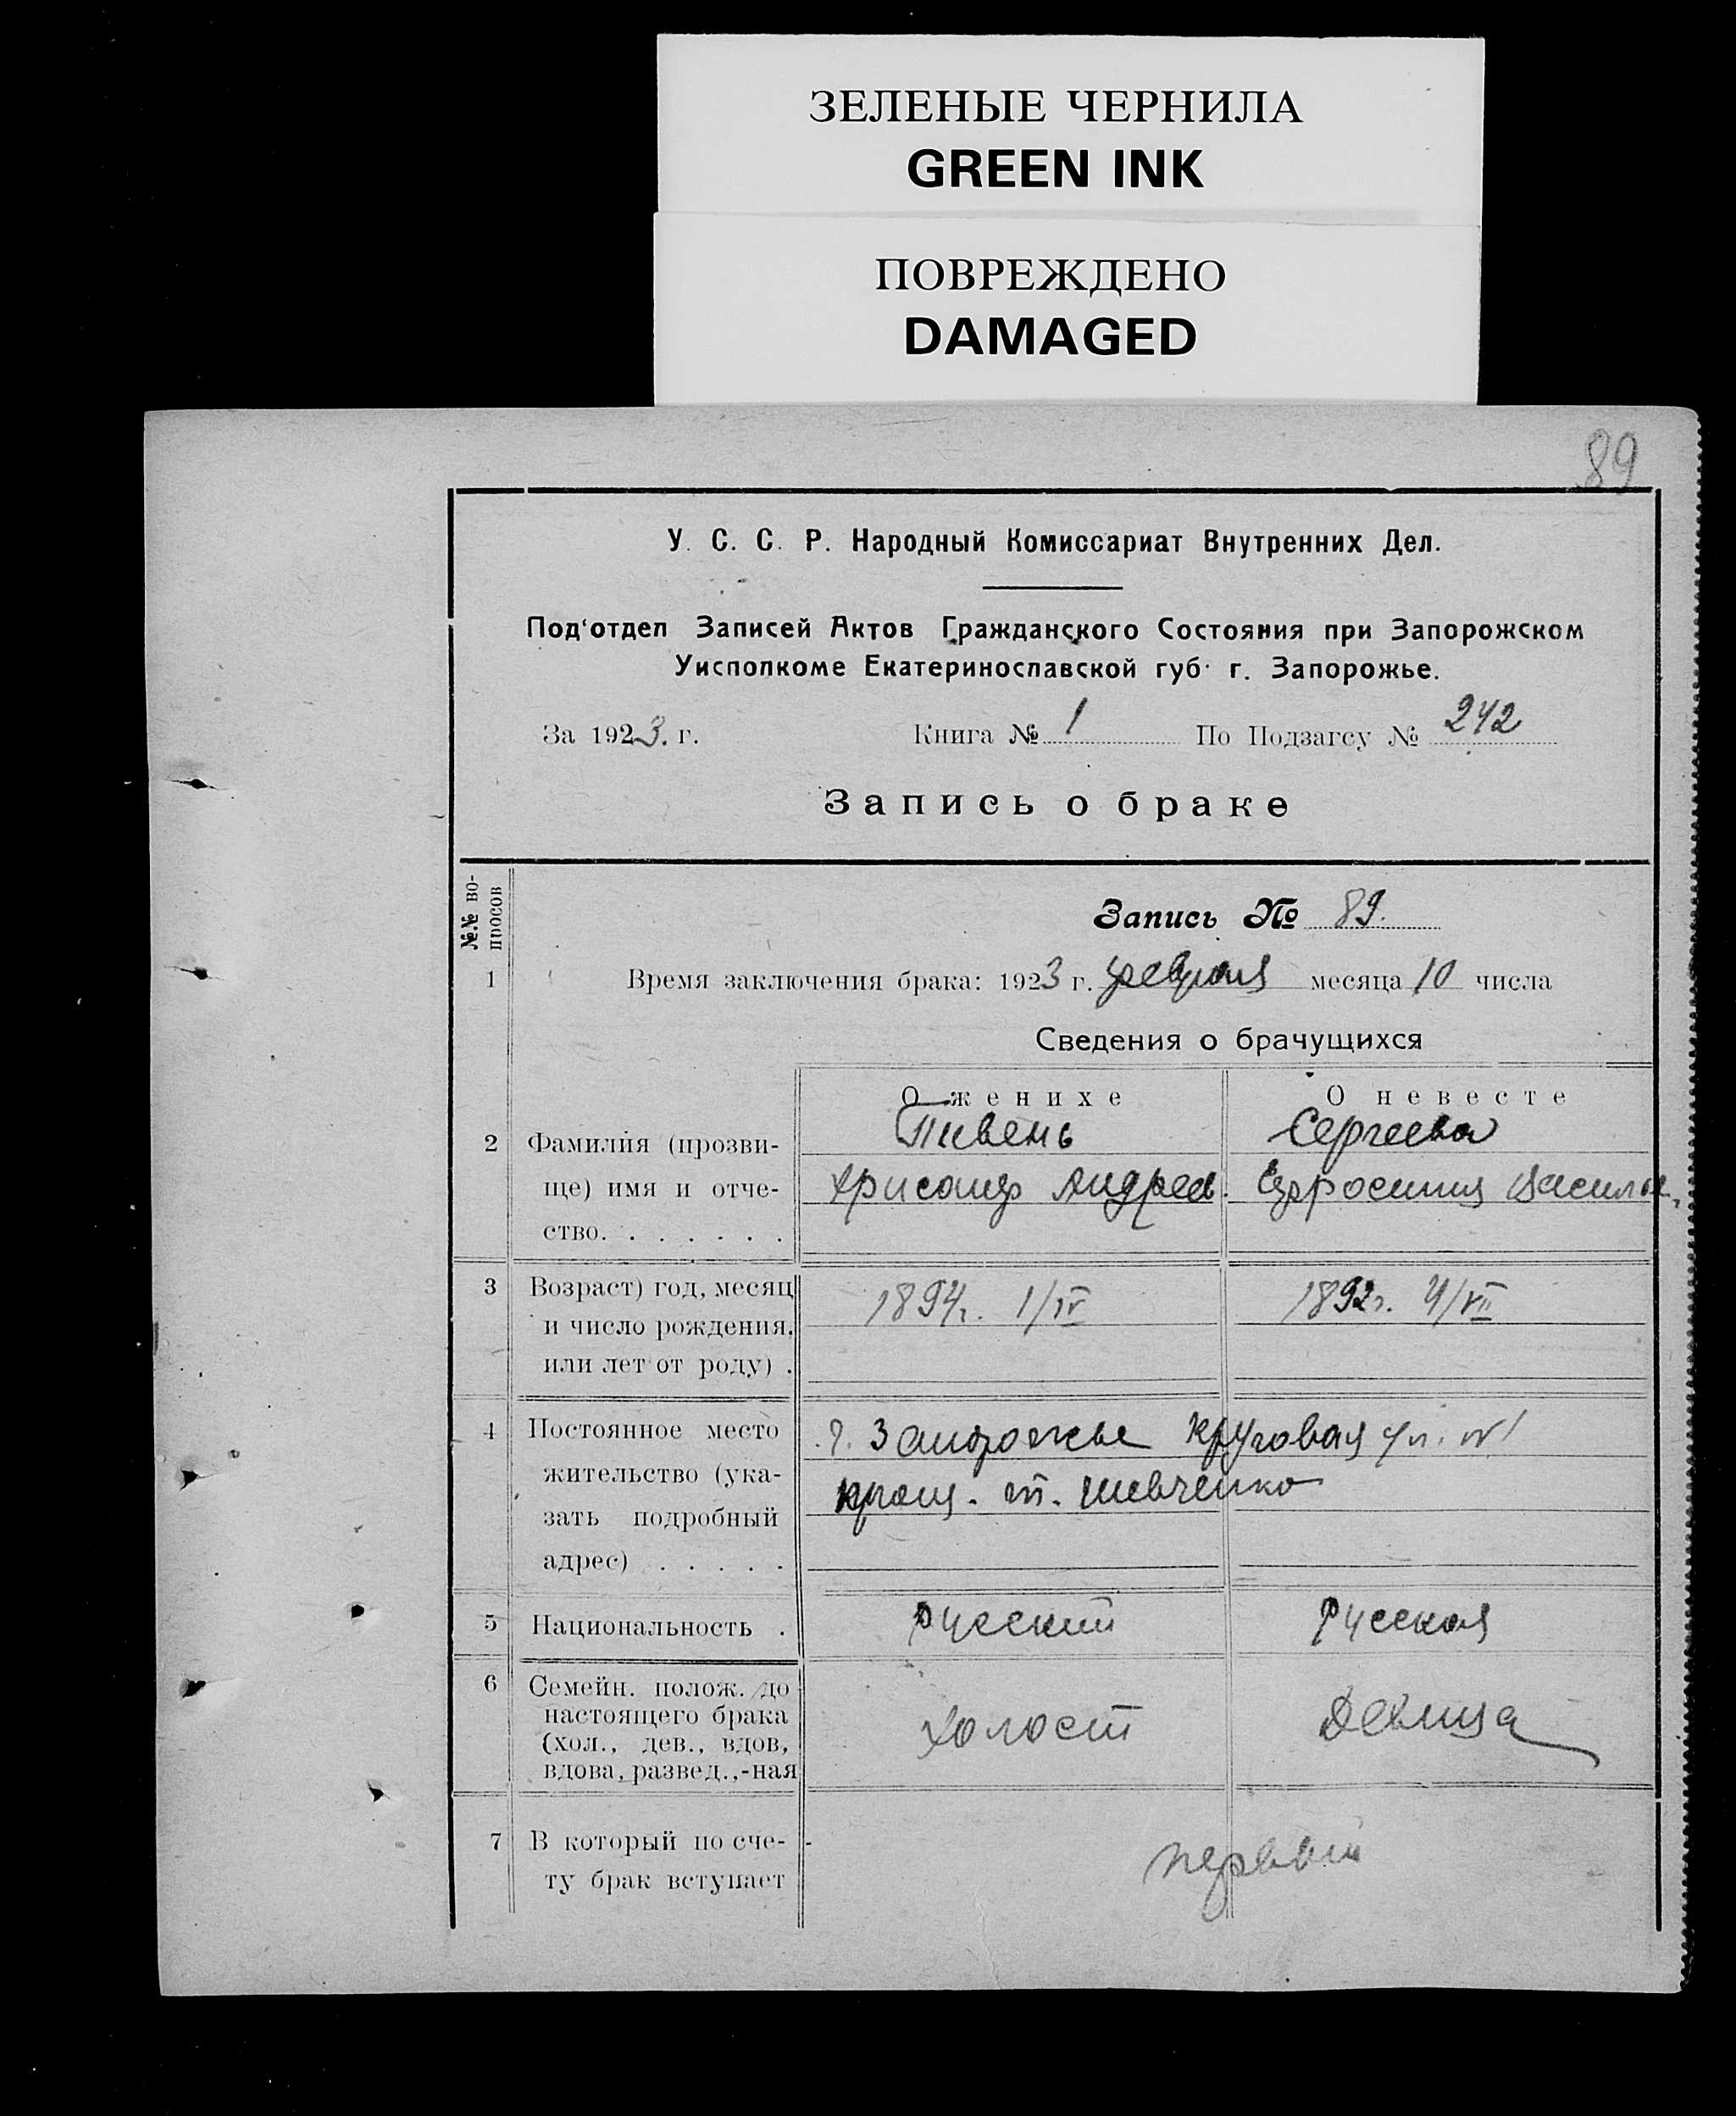 ЗЕЛЕНЫЕ ЧЕРНИЛА
GREEN INK
ПОВРЕЖДЕНО
DAMAGED
89
У. С. С. Р. Народный Комиссариат Внутренних Дел.
Под‘отдел Записей Актов Гражданского Состояния при Запорожском
Уисполкоме Екатеринославской губ. г. Запорожье.
За 1923. г. Книга № 1 По Подзагсу № 242
Запись о браке
№№ во-
просов
Запись № 89.
1 Время заключения брака: 1923 г. февраля месяца 10 числа
Сведения о брачущихся
О женихе О невесте
2 Фамилия (прозви- Пивень Сергеева
ще) имя и отче- Хрисанф Андреев. Ефросиния Василье.
ство. . . . . . .
3 Возраст) год, месяц 1894г. 1/IV 1892г. 4/VII
и число рождения.
или лет от роду) .
4 Постоянное место г. Запорожье Круговая ул. №1
жительство (ука- т. Шевченко
зать подробный
адрес) . . . . .
5 Национальность . Русский Русская
6 Семейн. полож. до
настоящего брака холост девица
(хол., дев., вдов,
вдова, развед.,-ная
7 В который по сче- первый
ту брак вступает